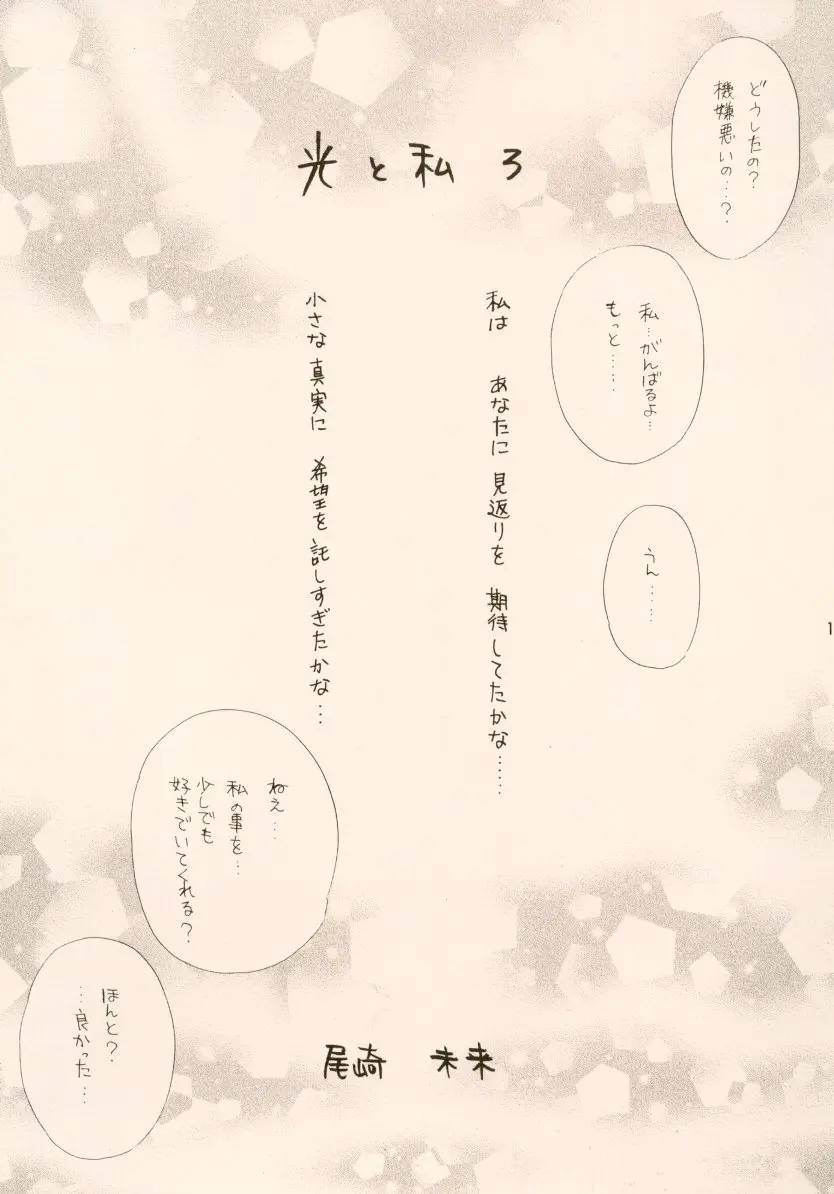 光と私 3
どうしたの?
機嫌悪いの…?
私…がんばるよ…
もっと……
うん……
私は あなたに 見返りを 期待してたかな……
小さな 真実に 希望を 託しすぎたかな…
ねえ…
私の事を…
少しでも
好きでいてくれる?
ほんと?
…良かった…
尾崎 未来
1